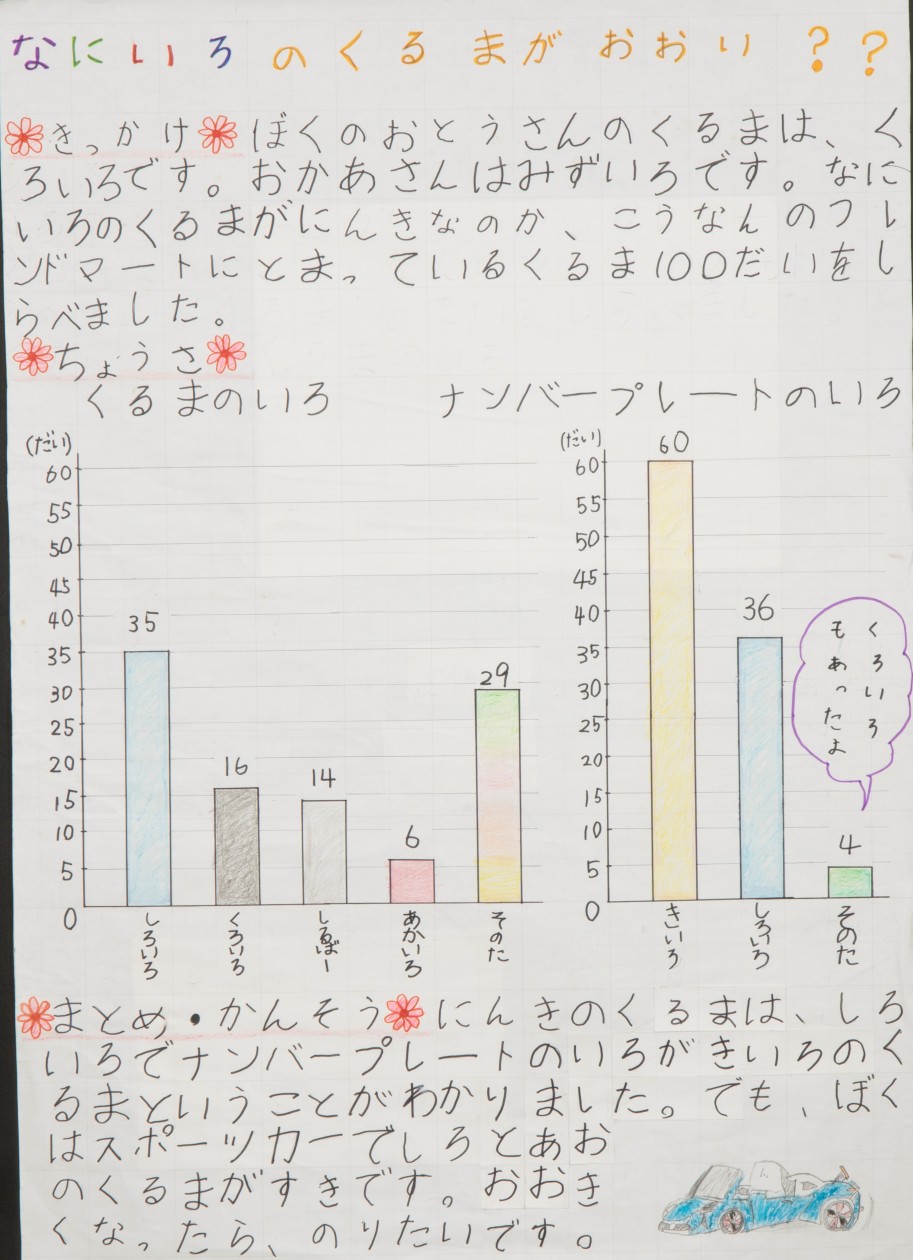 なにいろのくるまがおおい??
きっかけ ぼくのおとうさんのくるまは、く
ろいろです。おかあさんはみずいろです。なに
いろのくるまがにんきなのか、こうなんのフレ
ンドマートにとまっているくるま100だいをし
らべました。
ちょうさ
くるまのいろ
ナンバープレートのいろ
(だい)
60
55
50
45
40
35
30
25
20
15
10
5
0
35
16
14
6
29
しろいろ
くろいろ
しるばー
あかいろ
そのた
(だい)
60
55
50
45
40
35
30
25
20
15
10
5
0
60
36
4
くろいろ
もあったよ
きいろ
しろいろ
そのた
まとめ・かんそう にんきのくるまは、しろ
いろでナンバープレートのいろがきいろのく
るまということがわかりました。でも、ぼく
はスポーツカーでしろとあお
のくるまがすきです。おおき
くなったら、のりたいです。